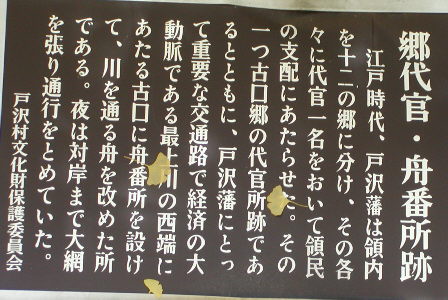 郷代官・舟番所跡
江戸時代、戸沢藩は領内
を十二の郷に分け、その各
々に代官一名をおいて領民
の支配にあたらせた。その
一つ古口郷の代官所跡であ
るとともに、戸沢藩にとっ
て重要な交通路で経済の大
動脈である最上川の西端に
あたる古口に舟番所を設け
て、川を通る舟を改めた所
である。夜は対岸まで大網
を張り通行をとめていた。
戸沢村文化財保護委員会